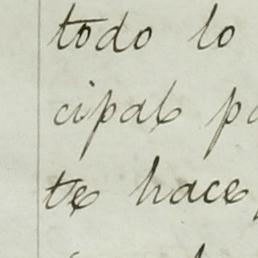 todo lo
cipal pa
te hace,